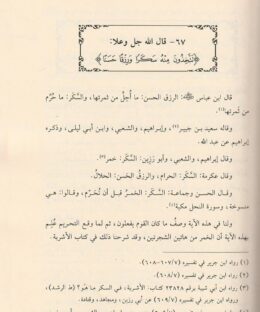 ٦٧- قال الله جل وعلا:
﴿تَتَّخِذُونَ مِنْهُ سَكَرًا وَرِزْقًا حَسَنًا﴾
قال ابن عباس ﷺ: الرزق الحسن: ما أُحِلَّ من ثمرتها، والسَّكَر: ما حُرِّم
من ثمرتها(١).
وقاله سعيد بن جبير(٢)، وإبراهيم، والشعبي، وابن أبي ليلى، وذكره
إبراهيم عن عبد الله.
وقال إبراهيم، والشعبي، وأبو رَزِين: السَّكَر: خمر(٣).
وقال عكرمة: السَّكَر: الحرام، والرزق الحَسَن: الحَلالُ.
وقال الحسن وجماعة: السَّكَر: الخَمرُ قبل أن تُحَرَّم، وقالوا: هي
منسوخة، وسورة النحل مكية(٤).
ولنا في هذه الآية وصفُ ما كان القوم يفعلون، ثم لما وقع التحريم عُلِم
بهذه الآية أن الخمر من هاتين الشجرتين، وقد شرحنا ذلك في كتاب الأشربة.
(١) رواه ابن جرير في تفسيره (٦٠٧/٧-٦٠٨).
(٢) رواه ابن أبي شيبة برقم ٢٣٨٢٨ كتاب: الأشربة، في السكر ما هُوَ؟ (ط الرشد)،
(٣) رواه ابن جرير في تفسيره (٦٠٩/٧) عن أبي رزين، ومجاهد، وقتادة.